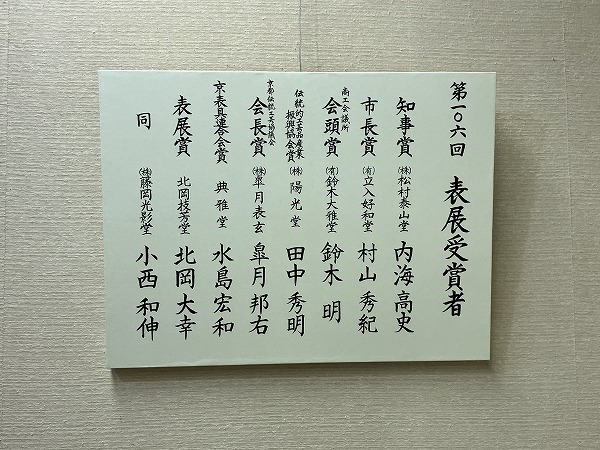 第一〇六回 表展受賞者
知事賞 ㈱松村泰山堂 内海高史
市長賞 ㈲立入好和堂 村山秀紀
商工会議所
会頭賞 ㈲鈴木大雅堂 鈴木明
伝統的工芸品産業
振興協会賞 ㈱陽光堂 田中秀明
京都伝統工芸協議会
会長賞 ㈱皐月表玄 皐月邦右
京表具連合会賞 典雅堂 水島宏和
表展賞 北岡技芳堂 北岡大幸
同 ㈱藤岡光影堂 小西和伸